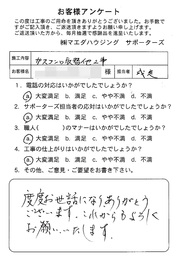 お客様アンケート
この度は工事のご用命を頂きありがとうございました。お手数で
すがご記入頂き、ご返送頂きますようお願い申し上げます。
ご返送頂いた方から、毎月抽選で感謝品を進呈いたします。
㈱マエダハウジング サポーターズ
施工内容 ガスコンロ取替工事
お客様名 様 担当者
1. 電話の対応はいかがでしたでしょうか?
a. 大変満足 b. 満足 c. やや不満 d. 不満
2. サポーターズ担当者の応対はいかがでしたでしょうか?
a. 大変満足 b. 満足 c. やや不満 d. 不満
3. 職人( )のマナーはいかがでしたでしょうか?
a. 大変満足 b. 満足 c. やや不満 d. 不満
4. 工事の仕上がりはいかがでしたでしょうか?
a. 大変満足 b. 満足 c. やや不満 d. 不満
5. その他、ご意見・ご要望をお書き下さい。
度度お世話になりありがとう
ございます。これからもよろしく
お願いいたします。